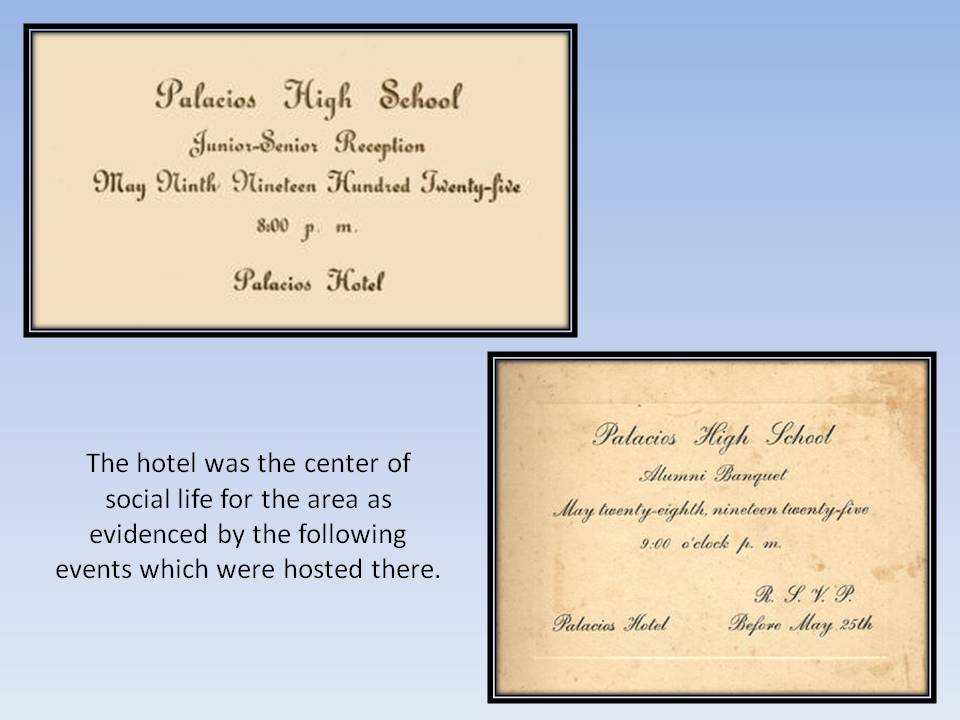 Palacios High School
Junior-Senior Reception
May Ninth Nineteen Hundred Twenty-five
8:00 p. m.
Palacios Hotel
The hotel was the center of
social life for the area as
evidenced by the following
events which were hosted there.
Palacios High School
Alumni Banquet
May twenty-eighth, nineteen twenty-five
9:00 o'clock p. m.
R. S. V. P.
Palacios Hotel Before May 25th